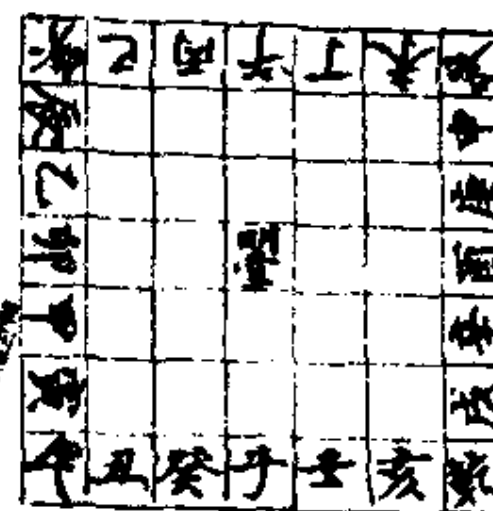 巽 巳 丙 午 丁 未 坤
辰 申
乙 庚
卯 酉
甲 辛
寅 戌
丑 癸 子 壬 亥 乾